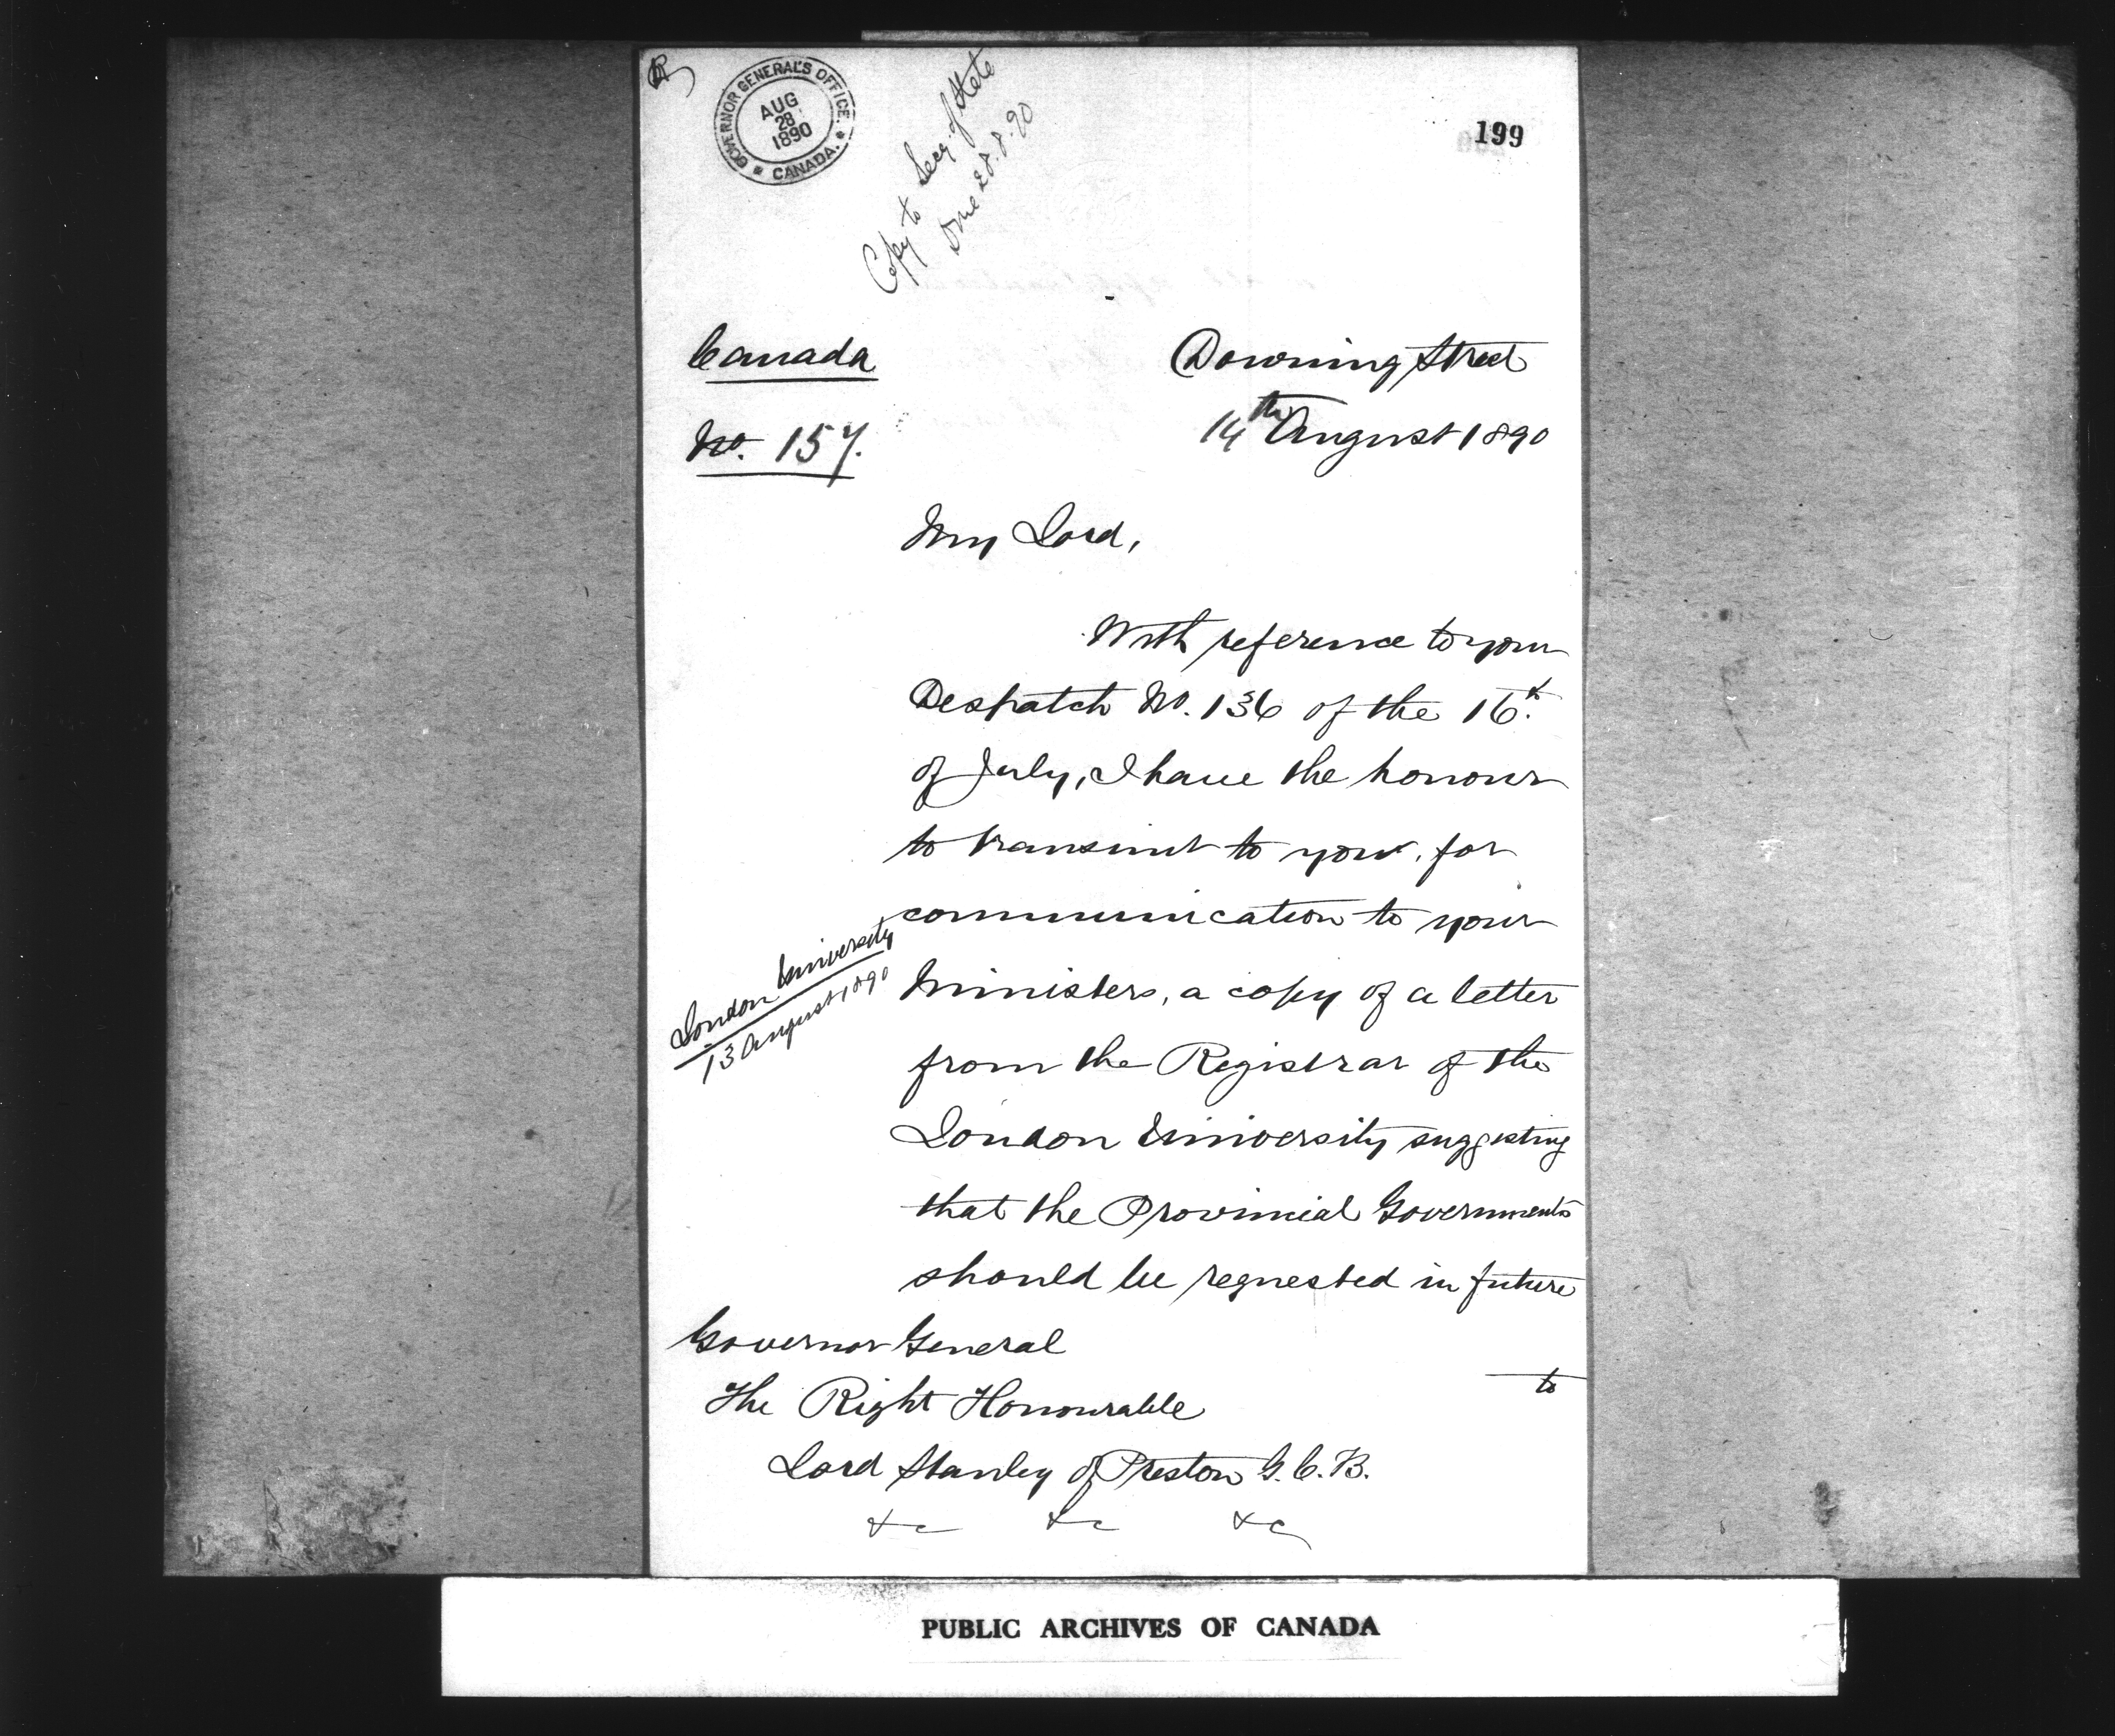 GOVERNOR GENERAL'S OFFICE.
AUG
28
1890
* CANADA. *
Copy to Secy. of State
Done 28.8.90
199
Canada
No. 157.
Downing Street
14th August 1890
My Lord,
With reference to your
Despatch No. 136 of the 16th.
of July, I have the honour
to transmit to you, for
communication to your
Ministers, a copy of a letter
London University
13 August 1890
from the Registrar of the
London University suggesting
that the Provincial Governments
should be requested in future
to
Governor General
The Right Honourable
Lord Stanley of Preston G.C.B.
&c &c &c
PUBLIC ARCHIVES OF CANADA